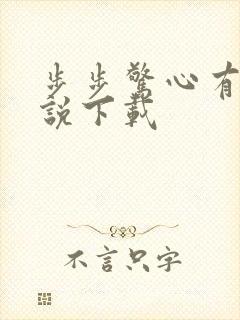 步步驚心有
說下載
不言只字